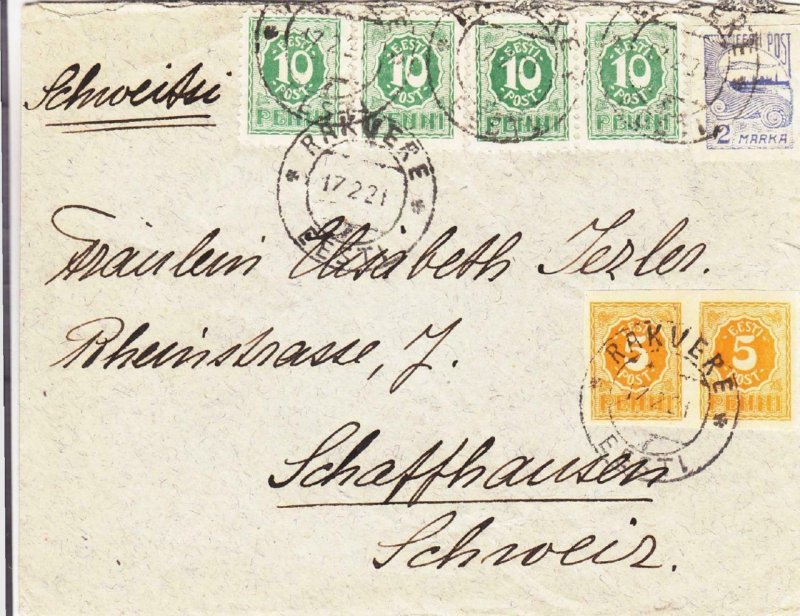 Schweitsi
10 10 10 10
EESTI EESTI EESTI EESTI EESTI POST
POST POST POST POST
PENNI PENNI PENNI PENNI 2 MARKA
RAKVERE
17 2 21
EESTI
Fräulein Elisabeth Jezler.
Rheinstrasse, 7.
EESTI EESTI
5 5
POST POST
PENNI PENNI
RAKVERE
17 2 21
EESTI
Schaffhausen
Schweiz.